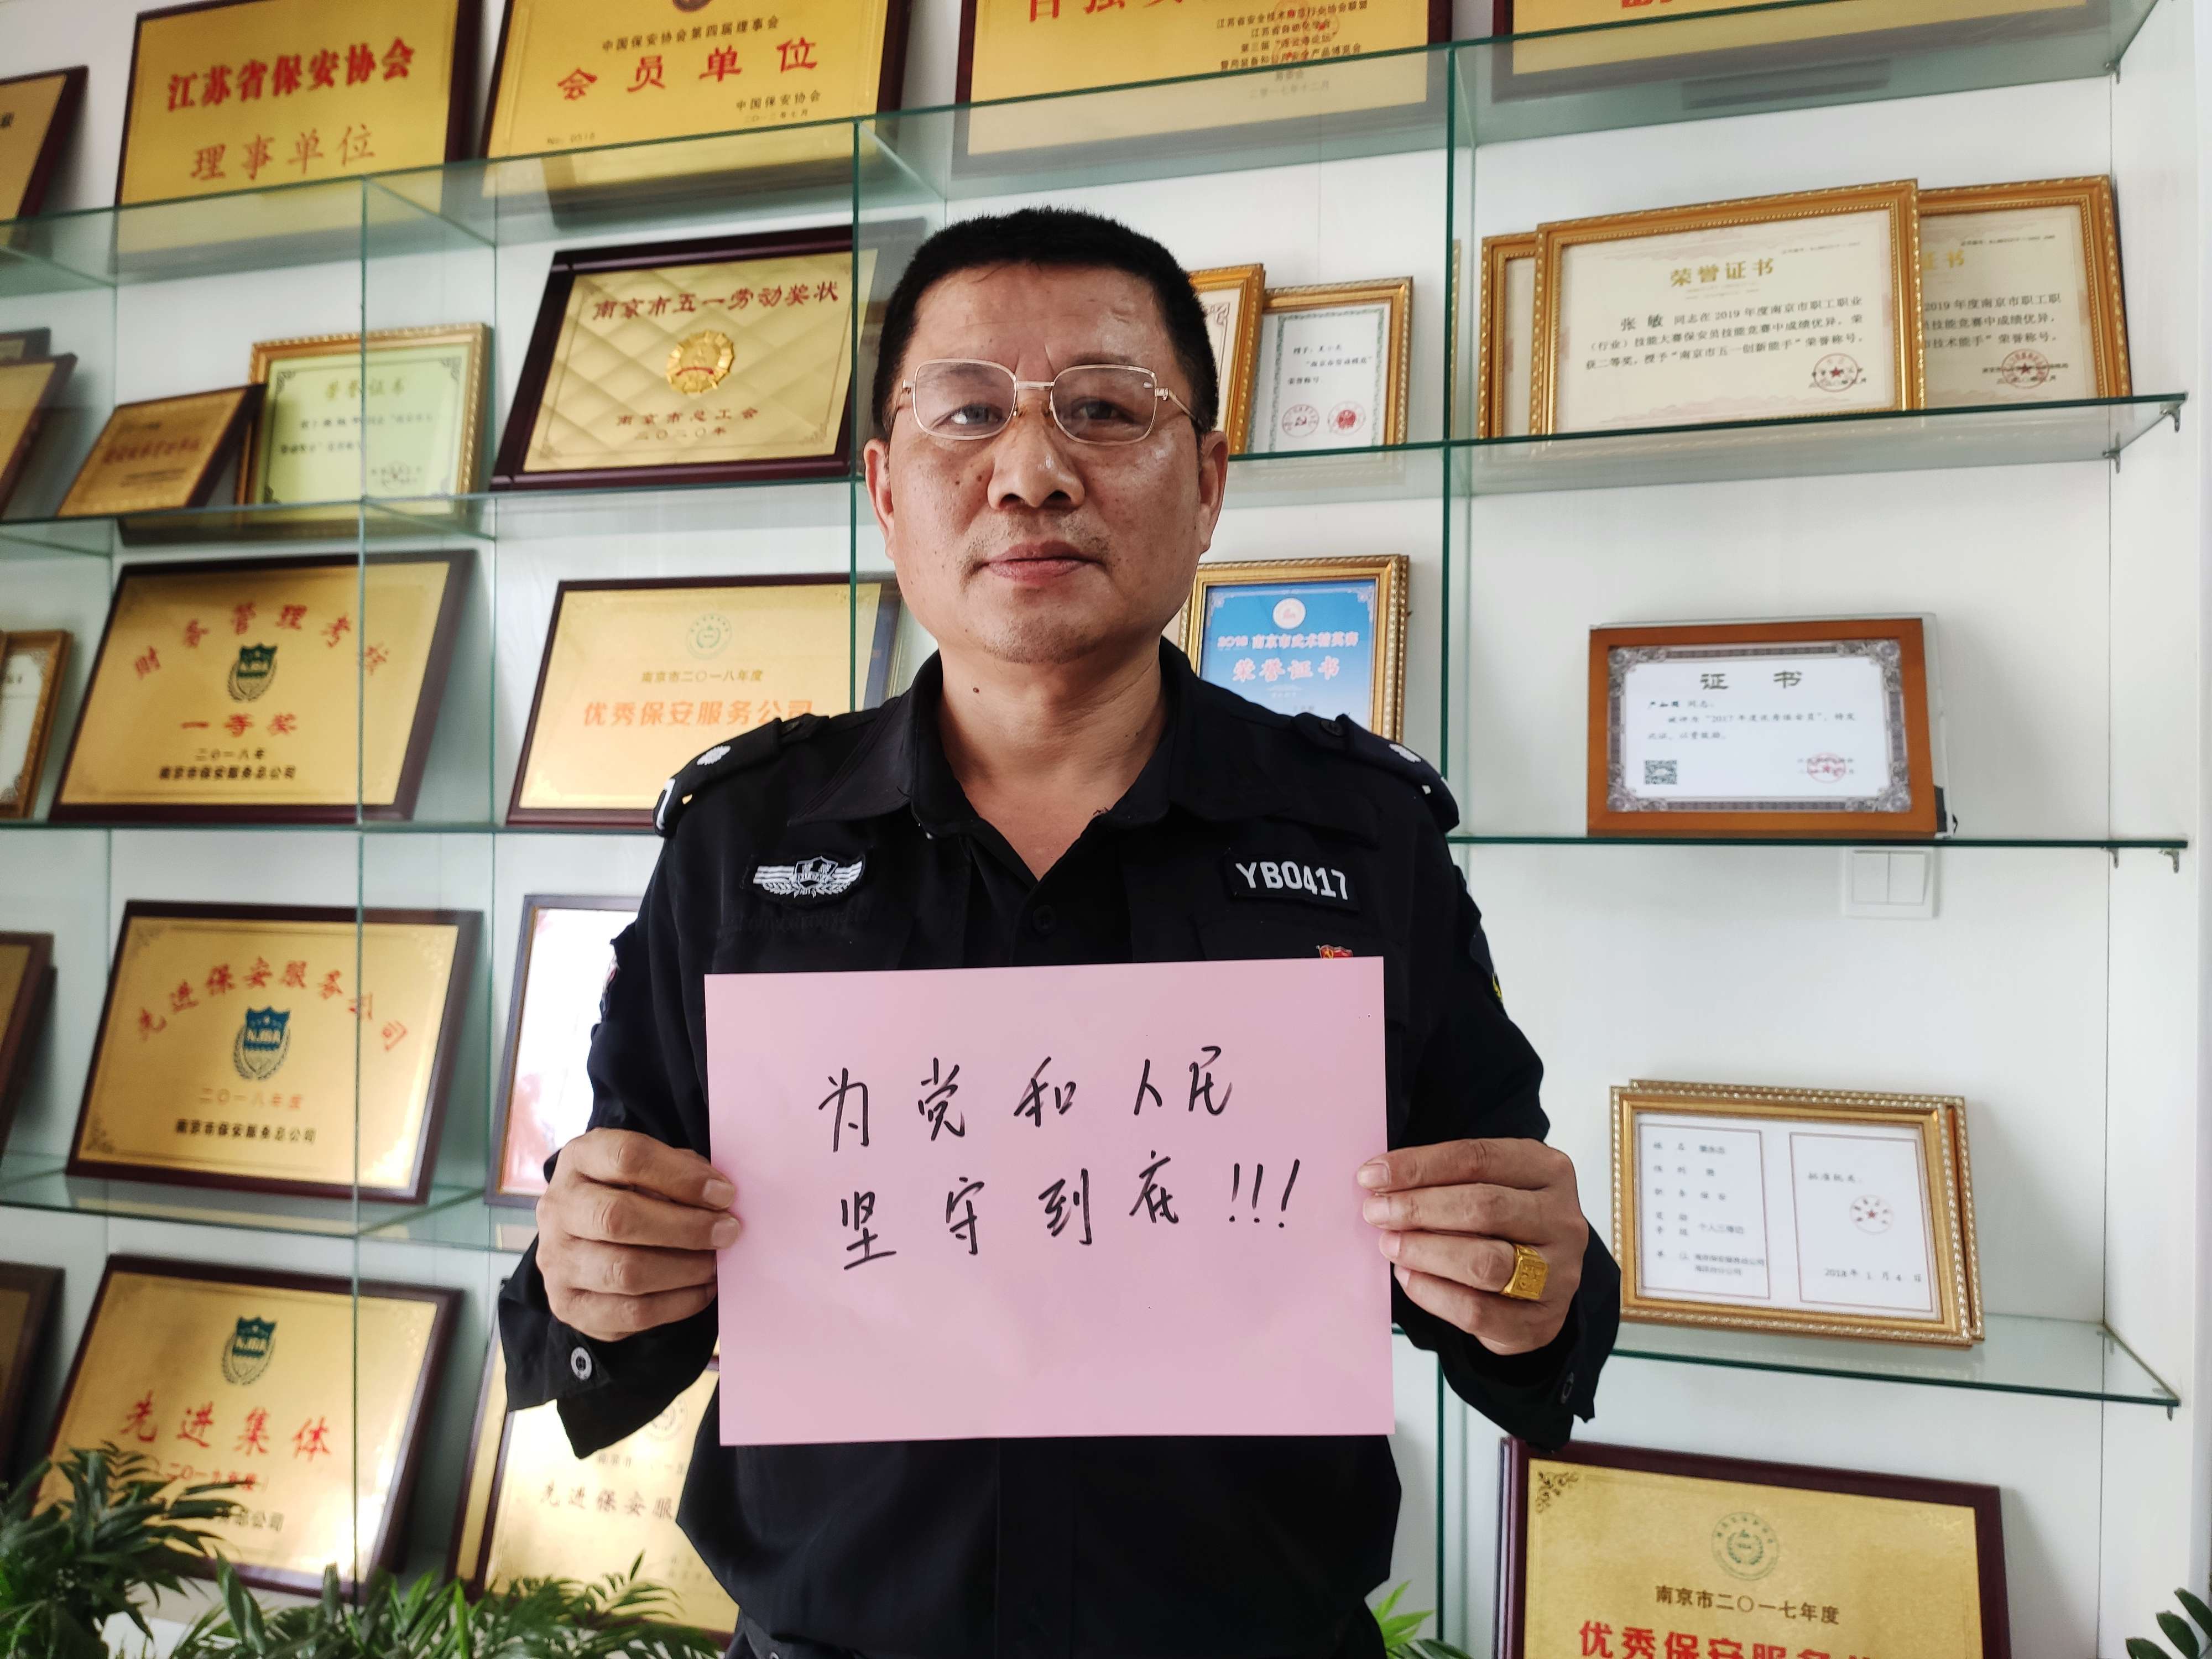 江苏省保安协会
理事单位
中国保安协会第四届理事会
会员单位
中国保安协会
二〇一三年七月
No. 0516
江苏省安全技术防范行业协会联盟
二零一七年十二月
荣誉证书
南京市五一劳动奖状
南京市总工会
二〇二〇年
荣誉证书
张敏 同志在2019年度南京市职工职业
（行业）技能大赛保安员技能竞赛中成绩优异，荣
获二等奖，授予“南京市五一创新能手”荣誉称号。
证书
2019年度南京市职工职
员技能竞赛中成绩优异，
市技术能手”荣誉称号。
荣誉称号
财务管理考核
NJBA
一等奖
二〇一八年
南京市保安服务总公司
南京市二〇一八年度
优秀保安服务公司
荣誉证书
证书
同志：
被评为“2017年度优秀保安员”，特发
此证，以资鼓励。
YB0417
为党和人民
坚守到底!!!
先进保安服务公司
NJBA
二〇一八年度
南京市保安服务总公司
姓名
性别 男
职务 保安
个人三等功
批准机关：
2018年1月4日
NJBA
先进集体
二〇一九年度
总公司
先进保安服
南京市二〇一七年度
优秀保安服务公